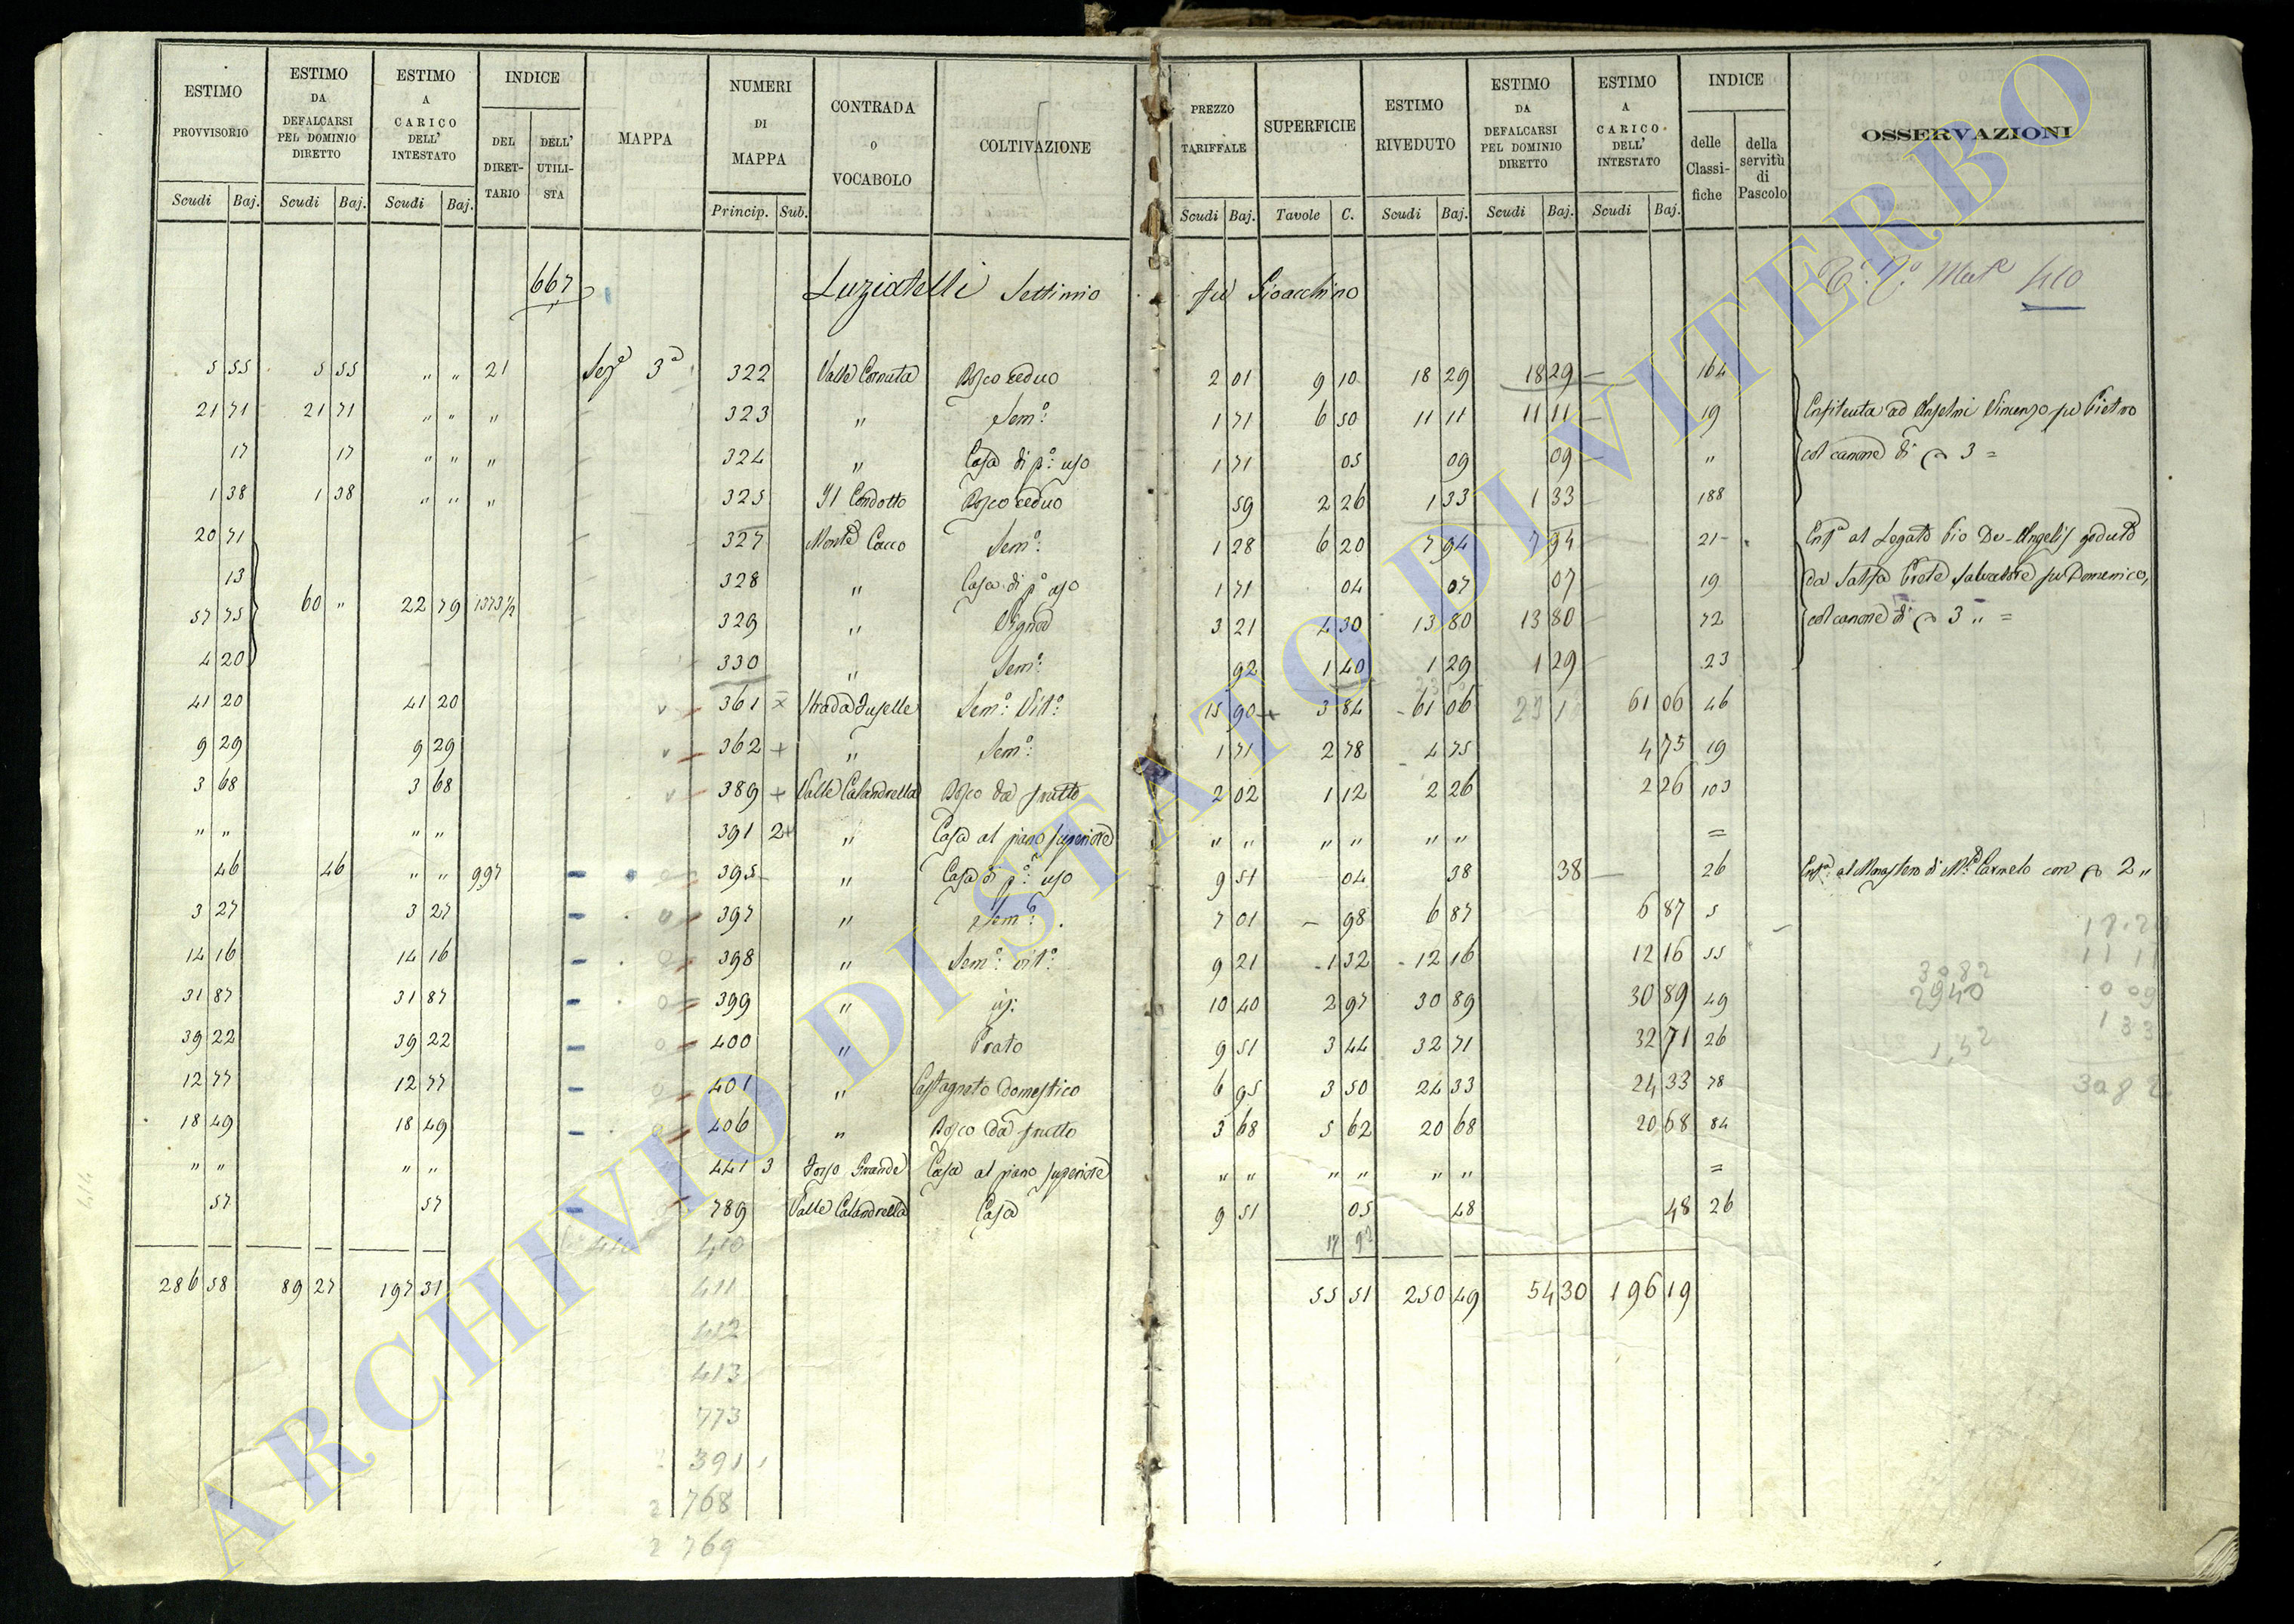 ESTIMO PROVVISORIO Scudi Baj.
ESTIMO DA DEFALCARSI PEL DOMINIO DIRETTO Scudi Baj.
ESTIMO A CARICO DELL' INTESTATO Scudi Baj.
INDICE DEL DIRETTARIO DELL' UTILISTA
MAPPA
NUMERI DI MAPPA Princip. Sub.
CONTRADA O VOCABOLO
COLTIVAZIONE
PREZZO TARIFFALE Scudi Baj.
SUPERFICIE Tavole C.
ESTIMO RIVEDUTO Scudi Baj.
ESTIMO DA DEFALCARSI PEL DOMINIO DIRETTO Scudi Baj.
ESTIMO A CARICO DELL' INTESTATO Scudi Baj.
INDICE delle Classifiche della servitù di Pascolo
OSSERVAZIONI
667 Luziatelli Settimio fu Gioacchino 410
5 55 5 55 " " 21 Sez.e 3a 322 Valle Cornuta Bosco ceduo 2 01 9 10 18 29 18 29 164
21 71 21 71 " " " 323 " Sem.o: 1 71 6 50 11 11 11 11 19 Enfiteuta ad Anselmi Vincenzo fu Pietro
17 17 " " " 324 " Casa di p.o: uso 1 71 05 09 09 " col canone di 3 =
1 38 1 38 " " " 325 Il Condotto Bosco ceduo 59 2 26 1 33 1 33 188
20 71 327 Monte Cucco Sem.o: 1 28 6 20 7 94 7 94 21 Enf.a al Legato Pio De-Angelis goduto
13 328 " Casa di p.o uso 1 71 04 07 07 19 da Salsa Prete Salvatore fu Domenico,
57 75 60 " 22 79 1373 1/2 329 " Vigna 3 21 4 30 13 80 13 80 72 col canone di 3 " =
4 20 330 " Sem.o: 92 1 40 1 29 1 29 23
41 20 41 20 361 Strada Fuselle Sem.o: Vit.o: 15 90 3 84 61 06 61 06 46
9 29 9 29 362 " Sem.o: 1 71 2 78 4 75 4 75 19
3 68 3 68 389 Valle Calandrella Bosco da frutto 2 02 1 12 2 26 2 26 103
" " " " 391 2 " Casa al piano superiore " " " " " " =
46 46 " " 997 395 " Casa di p.o: uso 9 51 04 38 38 26 Enf.a al Monastero di M.e Carmelo con 2 "
3 27 3 27 397 " Sem.o: 7 01 98 6 87 6 87 5
14 16 14 16 398 " Sem.o: vit.o: 9 21 1 32 12 16 12 16 55
31 87 31 87 399 " id: 10 40 2 97 30 89 30 89 49
39 22 39 22 400 " Prato 9 51 3 44 32 71 32 71 26
12 77 12 77 401 " Castagneto domestico 6 95 3 50 24 33 24 33 78
18 49 18 49 406 " Bosco da frutto 3 68 5 62 20 68 20 68 84
" " " " 441 3 Fosso Grande Casa al piano superiore " " " " " " =
57 57 789 Valle Calandrella Casa 9 51 05 48 48 26
410 410
286 58 89 27 197 31 55 51 250 49 54 30 196 19
411
412
413
773
391
2 768
2 769
11 11
3082
2940
0 09
1 33
1,52
3082
ARCHIVIO DI STATO DI VITERBO